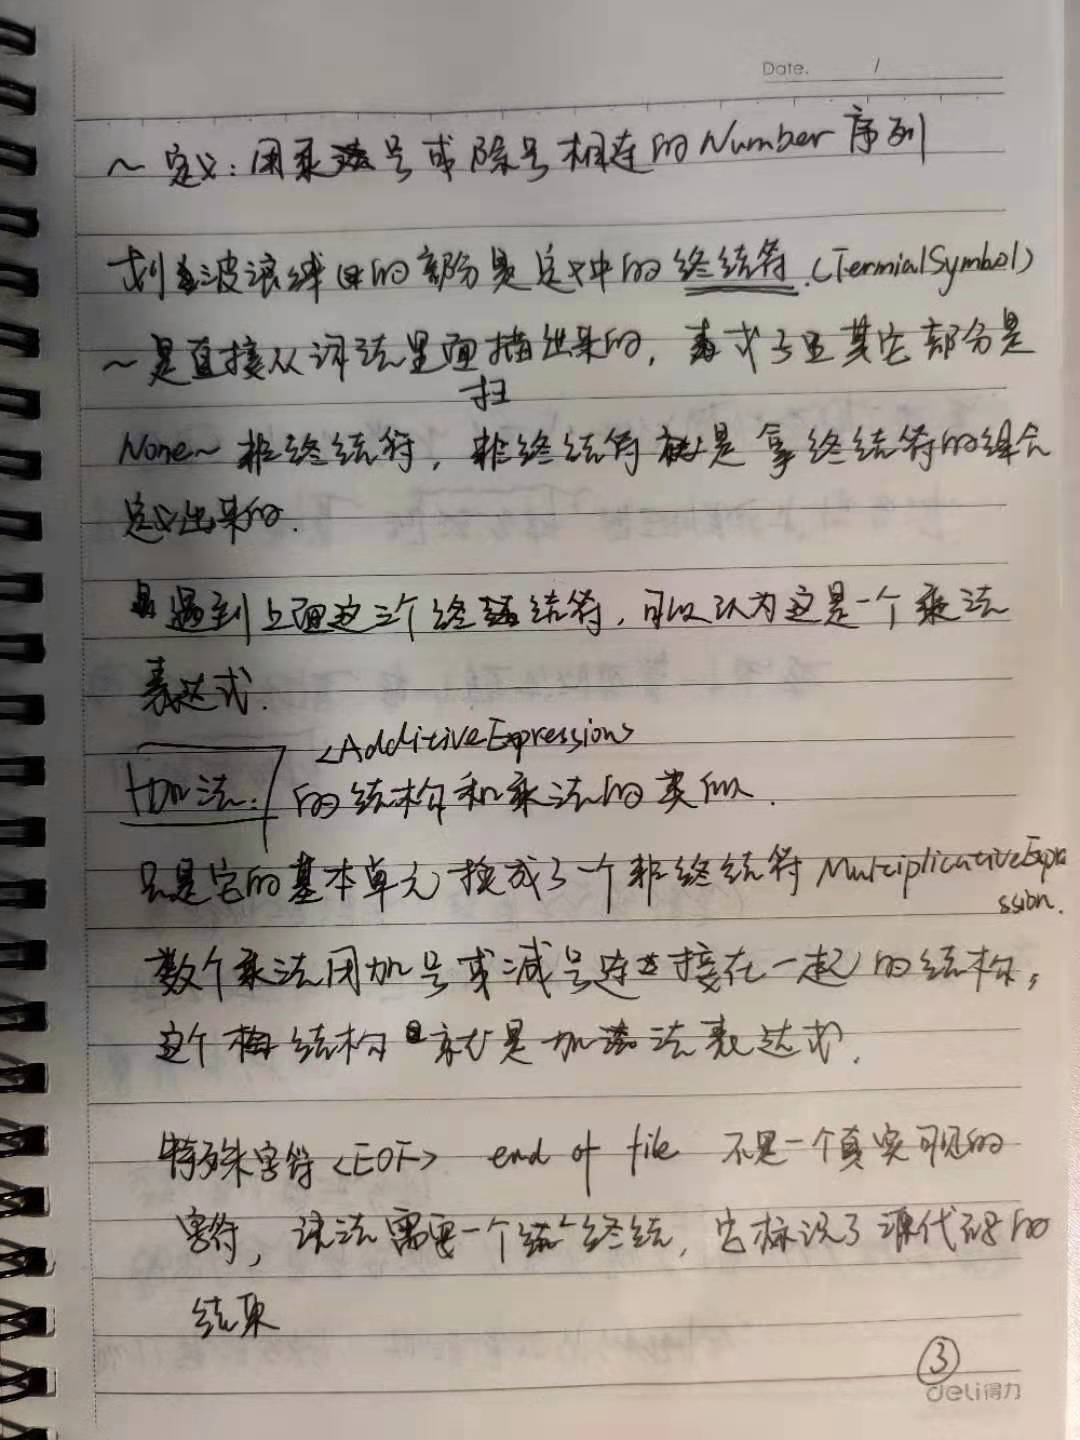 Date. /
~定义:用乘法号或除号相连的Number序列
划波浪线的部分是定义中的终结符.(TermialSymbol)
~是直接从词法里面描出来的,表式了且其它部分是
扫
None~非终结符,非终结符就是拿终结符的组合
定义出来的.
遇到上面这三个终结符,可以认为这是一个乘法
表达式.
<AdditiveExpression>
加法: 的结构和乘法的类似.
只是它的基本单元换成了一个非终结符MultiplicativeExpre
ssion.
数个乘法用加号或减号连接在一起的结构,
这个结构就是加法表达式.
特殊字符<EOF> end of file 不是一个真实可见的
字符,语法需要一个终结,它标识了源代码的
结束
③
deli得力